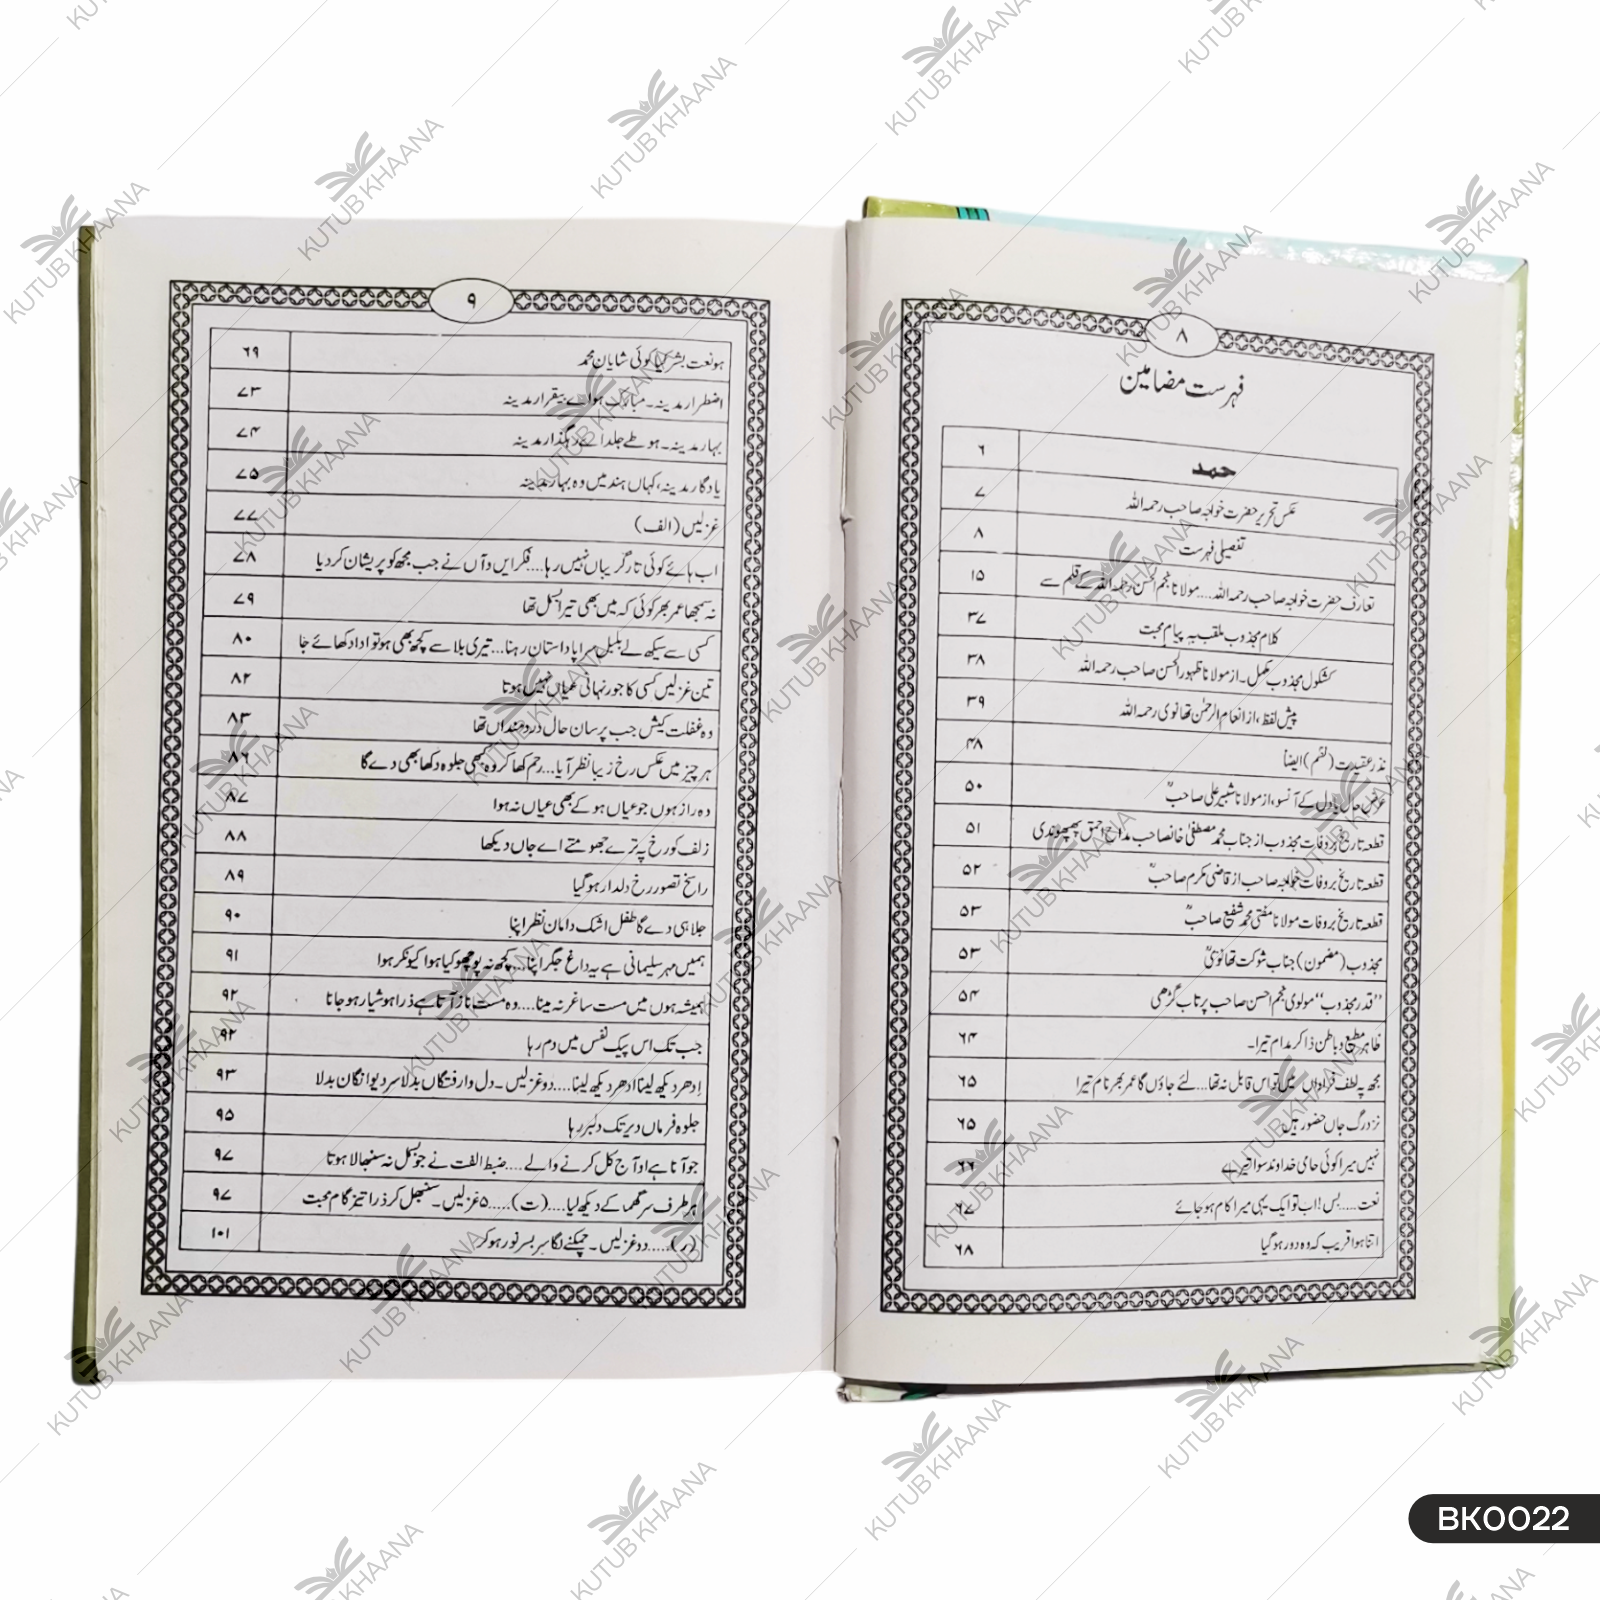 ۸
فہرست مضامین
حمد ۶
عکس تحریر حضرت خواجہ صاحب رحمہ اللہ ۷
تفصیلی فہرست ۸
تعارف حضرت خواجہ صاحب رحمہ اللہ.... مولانا نجم احسن رحمہ اللہ کے قلم سے ۱۵
کلام مجذوب ملقب بہ پیام محبت ۳۷
کشکول مجذوب مکمل۔ از مولانا ظہور الحسن صاحب رحمہ اللہ ۳۸
پیش لفظ، از انعام الرحمٰن تھانوی رحمہ اللہ ۳۹
نذر عقیدت (نظم) ایضاً ۴۸
عرض حال یا دل کے آنسو، از مولانا شبیر علی صاحبؒ ۵۰
قطعہ تاریخ بروفات مجذوب از جناب محمد مصطفیٰ خانصاحب مداح احمق پھپھوندی ۵۱
قطعہ تاریخ بروفات خواجہ صاحب از قاضی مکرم صاحبؒ ۵۲
قطعہ تاریخ بروفات مولانا مفتی محمد شفیع صاحبؒ ۵۳
مجذوب (مضمون) جناب شوکت تھانویؒ ۵۳
"قدر مجذوب" مولوی نجم احسن صاحب پرتاب گڑھی ۵۴
ظاہر مطیع و باطن ذاکر مدام تیرا۔ ۶۴
مجھ پہ لطف فراواں میں تو اس قابل نہ تھا... لئے جاؤں گا عمر بھر نام تیرا ۶۵
نزد رگ جاں حضور ہیں ۶۵
نہیں میرا کوئی حامی خداوند سوا تیرے ۶۶
نعت..... بس! اب تو ایک یہی میرا کام ہو جائے ۶۷
اتنا ہوا قریب کہ وہ دور ہو گیا ۶۸
۹
ہو نعت بشر کیا کوئی شایان محمد ۶۹
اضطرار مدینہ۔ مبارک ہو اے بیقرار مدینہ ۷۳
بہار مدینہ۔ ہو طے جلد اے رہگذار مدینہ ۷۴
یادگار مدینہ، کہاں ہند میں وہ بہار مدینہ ۷۵
غزلیں (الف) ۷۷
اب ہائے کوئی تار گریباں نہیں رہا.... فکر ایں و آں نے جب مجھ کو پریشان کر دیا ۷۸
نہ سمجھا عمر بھر کوئی کہ میں بھی تیرا بسمل تھا ۷۹
کسی سے سیکھ لے بلبل سراپا داستان رہنا... تیری بلا سے کچھ بھی ہو تو ادا دکھائے جا ۸۰
تین غزلیں کسی کا جور نہانی عیاں نہیں ہوتا ۸۲
وہ غفلت کیش جب پرسان حال دردمنداں تھا ۸۳
ہر چیز میں عکس رخ زیبا نظر آیا... رحم کھا کر وہ بھی جلوہ دکھا بھی دے گا ۸۶
وہ راز ہوں جو عیاں ہو کے بھی عیاں نہ ہوا ۸۷
زلف کو رخ پہ ترے جھومتے اے جاں دیکھا ۸۸
راسخ تصور رخ دلدار ہو گیا ۸۹
جلا ہی دے گا طفل اشک دامان نظر اپنا ۹۰
ہمیں مہر سلیمانی ہے یہ داغ جگر اپنا.... کچھ نہ پوچھو کیا ہوا کیونکر ہوا ۹۱
ہمیشہ ہوں میں مست ساغر نہ مینا.... وہ مست ناز آتا ہے ذرا ہوشیار ہو جانا ۹۲
جب تک اس پیک نفس میں دم رہا ۹۲
اِدھر دیکھ لینا اُدھر دیکھ لینا.... دو غزلیں۔ دل وارفتگاں بدلا سر دیوانگان بدلا ۹۳
جلوہ فرماں دیر تک دلبر رہا ۹۵
جو آتا ہے او آج کل کرنے والے.... ضبط الفت نے جو بسمل نہ سنبھالا ہوتا ۹۷
ہر طرف سر گھما کے دیکھ لیا.... (ت)..... ۵ غزلیں۔ سنبھل کر ذرا تیز گام محبت ۹۷
(ر)..... دو غزلیں۔ چمکنے لگا سر بسر نور ہو کر ۱۰۱
KUTUB KHAANA
BK0022